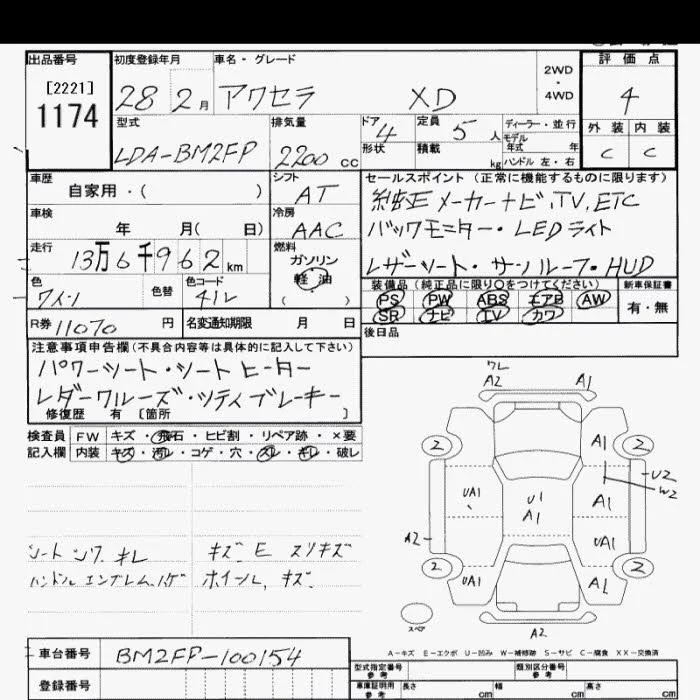 出品番号 初度登録年月 車名・グレード 評価点
[2221]
1174
28 2月 アクセラ XD 2WD・4WD 4
型式 排気量 ドア 4 定員 5人 ディーラー・並行 外装 内装
LDA-BM2FP 2200cc 形状 積載 kg モデル年式 年 ハンドル 左・右 C C
車歴 シフト セールスポイント(正常に機能するものに限ります)
自家用・( ) AT 純正メーカーナビ、TV、ETC
車検 冷房 バックモニター・LEDライト
年 月( 日) AAC
走行 燃料 レザーシート・サンルーフ・HUD
13万6千962km ガソリン
色 色替 色コード 軽油 装備品(純正品に限り〇をつけてください) 新車保証書
ワイン 41L ( ) PS PW ABS エアB AW 有・無
SR ナビ TV カワ
R券 11070円 名変通知期限 月 日 後日品
注意事項申告欄(不具合内容等は具体的に記入して下さい)
パワーシート・シートヒーター
レダークルーズ・シティブレーキ
修復歴 有 〔箇所 〕
検査員 FW キズ・飛石・ヒビ割・リペア跡・×要
記入欄 内装 キズ・汚レ・コゲ・穴・スレ・キレ・破レ
シート シワ キレ キズ E スリキズ
ハンドルエンブレムハゲ ホイール キズ
ワレ
A2 A1
2 A1 2
U2
W2
UA1 U1 A1
A1
A2 UA1
2 UA1 A1 2
スペア A2
A-キズ E-エクボ U-凹み W-補修跡 S-サビ C-腐食 XX-交換済
車台番号 BM2FP-100154
登録番号
型式指定番号 参考 類別区分番号 参考
車庫証明用 参考 長さ cm 幅 cm 高さ cm